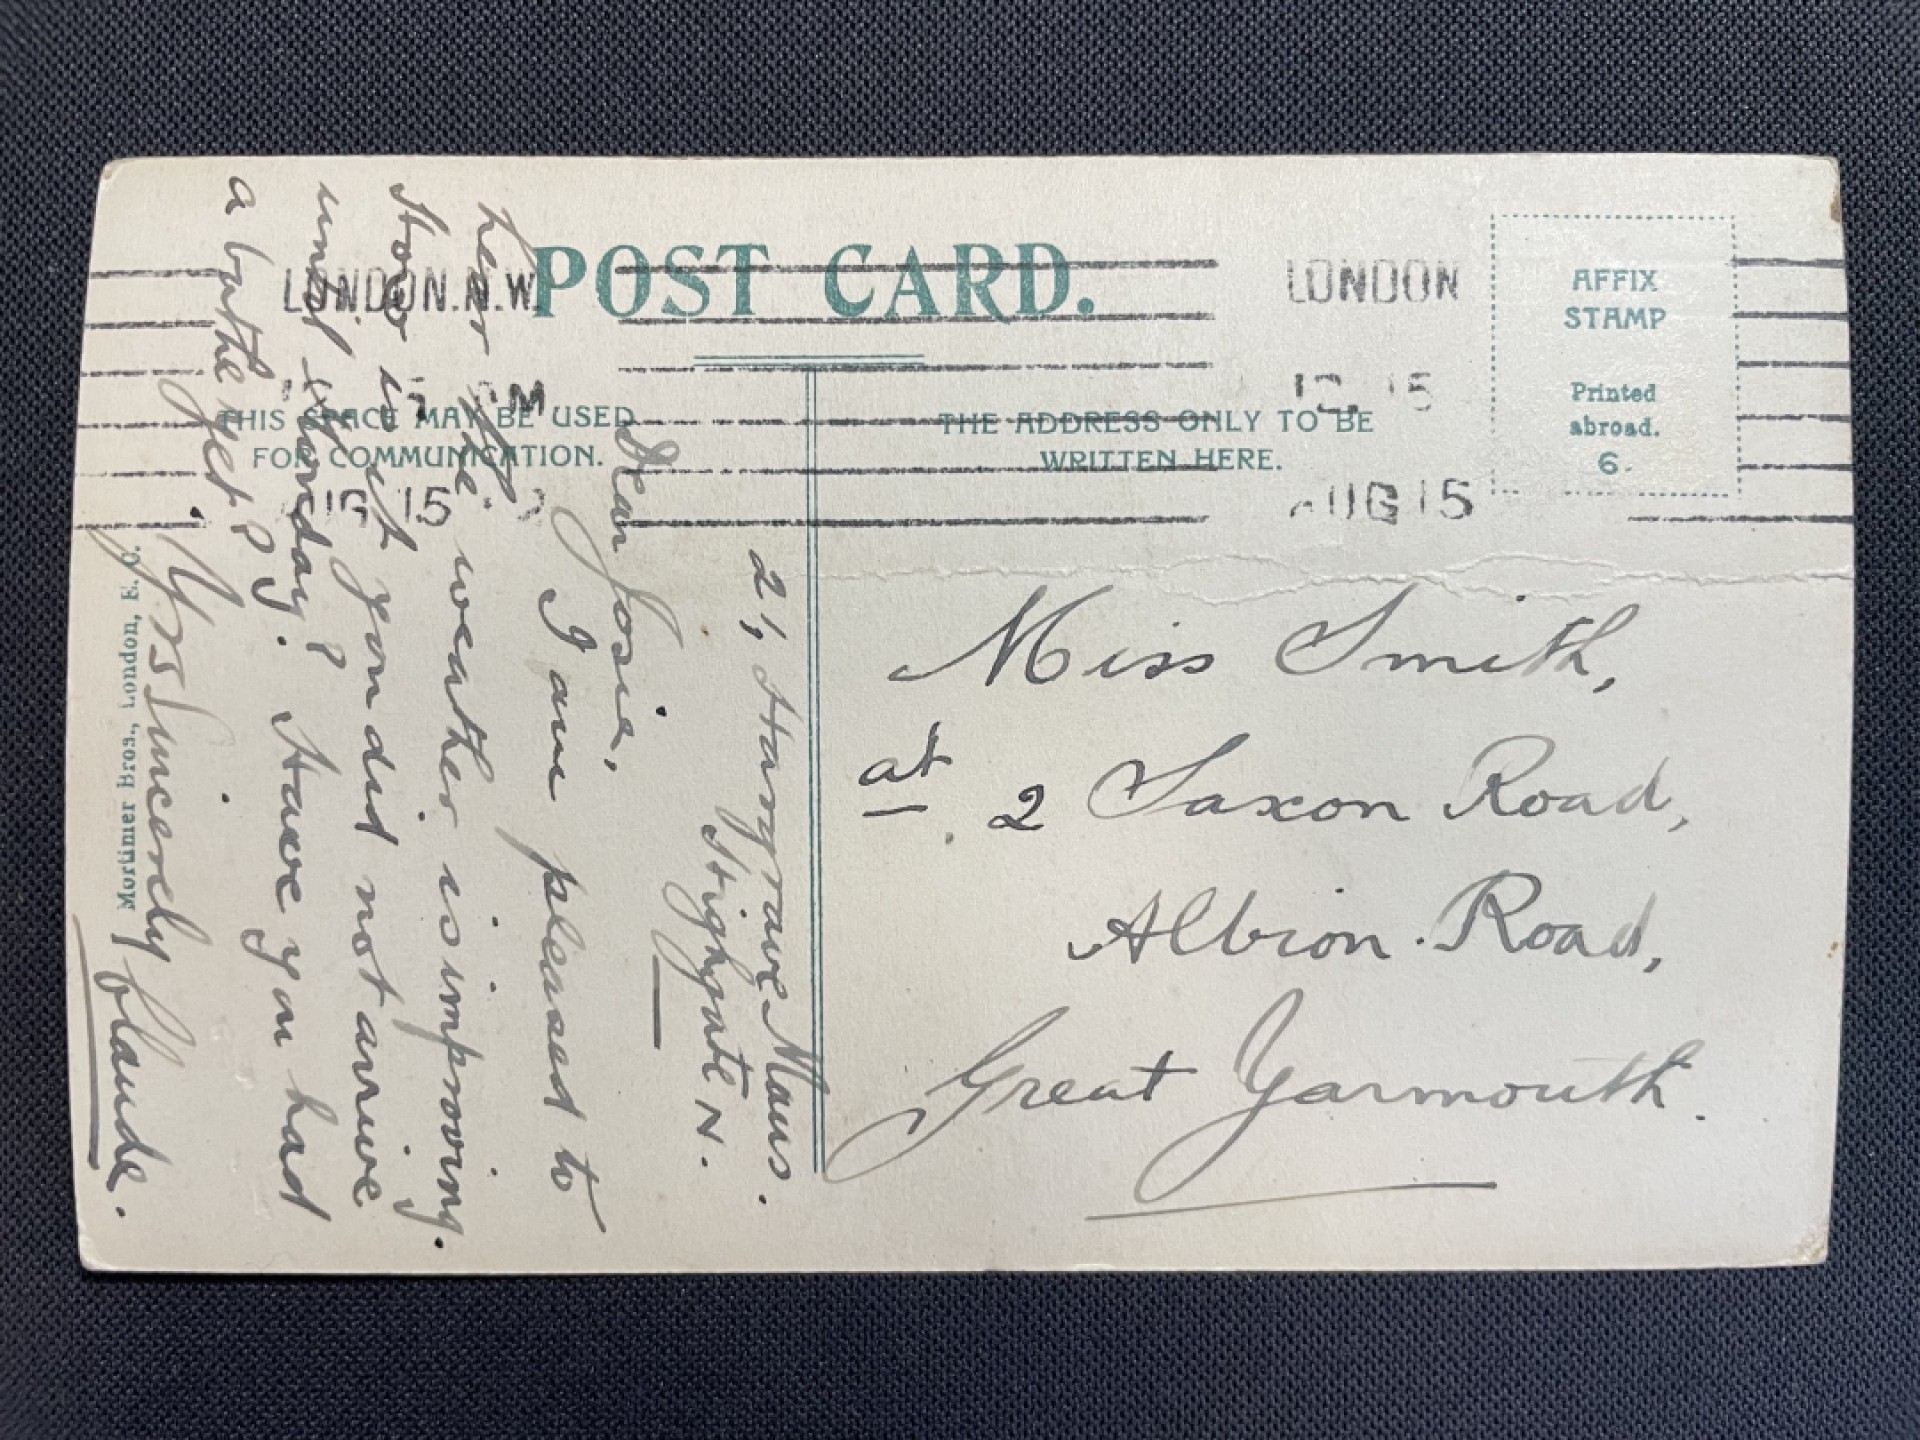 POST CARD.
THIS SPACE MAY BE USED
FOR COMMUNICATION.
THE ADDRESS ONLY TO BE
WRITTEN HERE.
AFFIX
STAMP
Printed
abroad.
6.
LONDON.N.W.
PM
AUG 15
LONDON
12. 15
AUG 15
21, Hargrave Mans.
Highgate N.
Dear Josie,
I am pleased to
hear the weather is improving.
How is it you did not arrive
until Sunday? Have you had
a bathe yet?
Yrs Sincerely
Claude.
Miss Smith,
at 2 Saxon Road,
Albion Road,
Great Yarmouth.
Mortimer Bros., London, E. C.